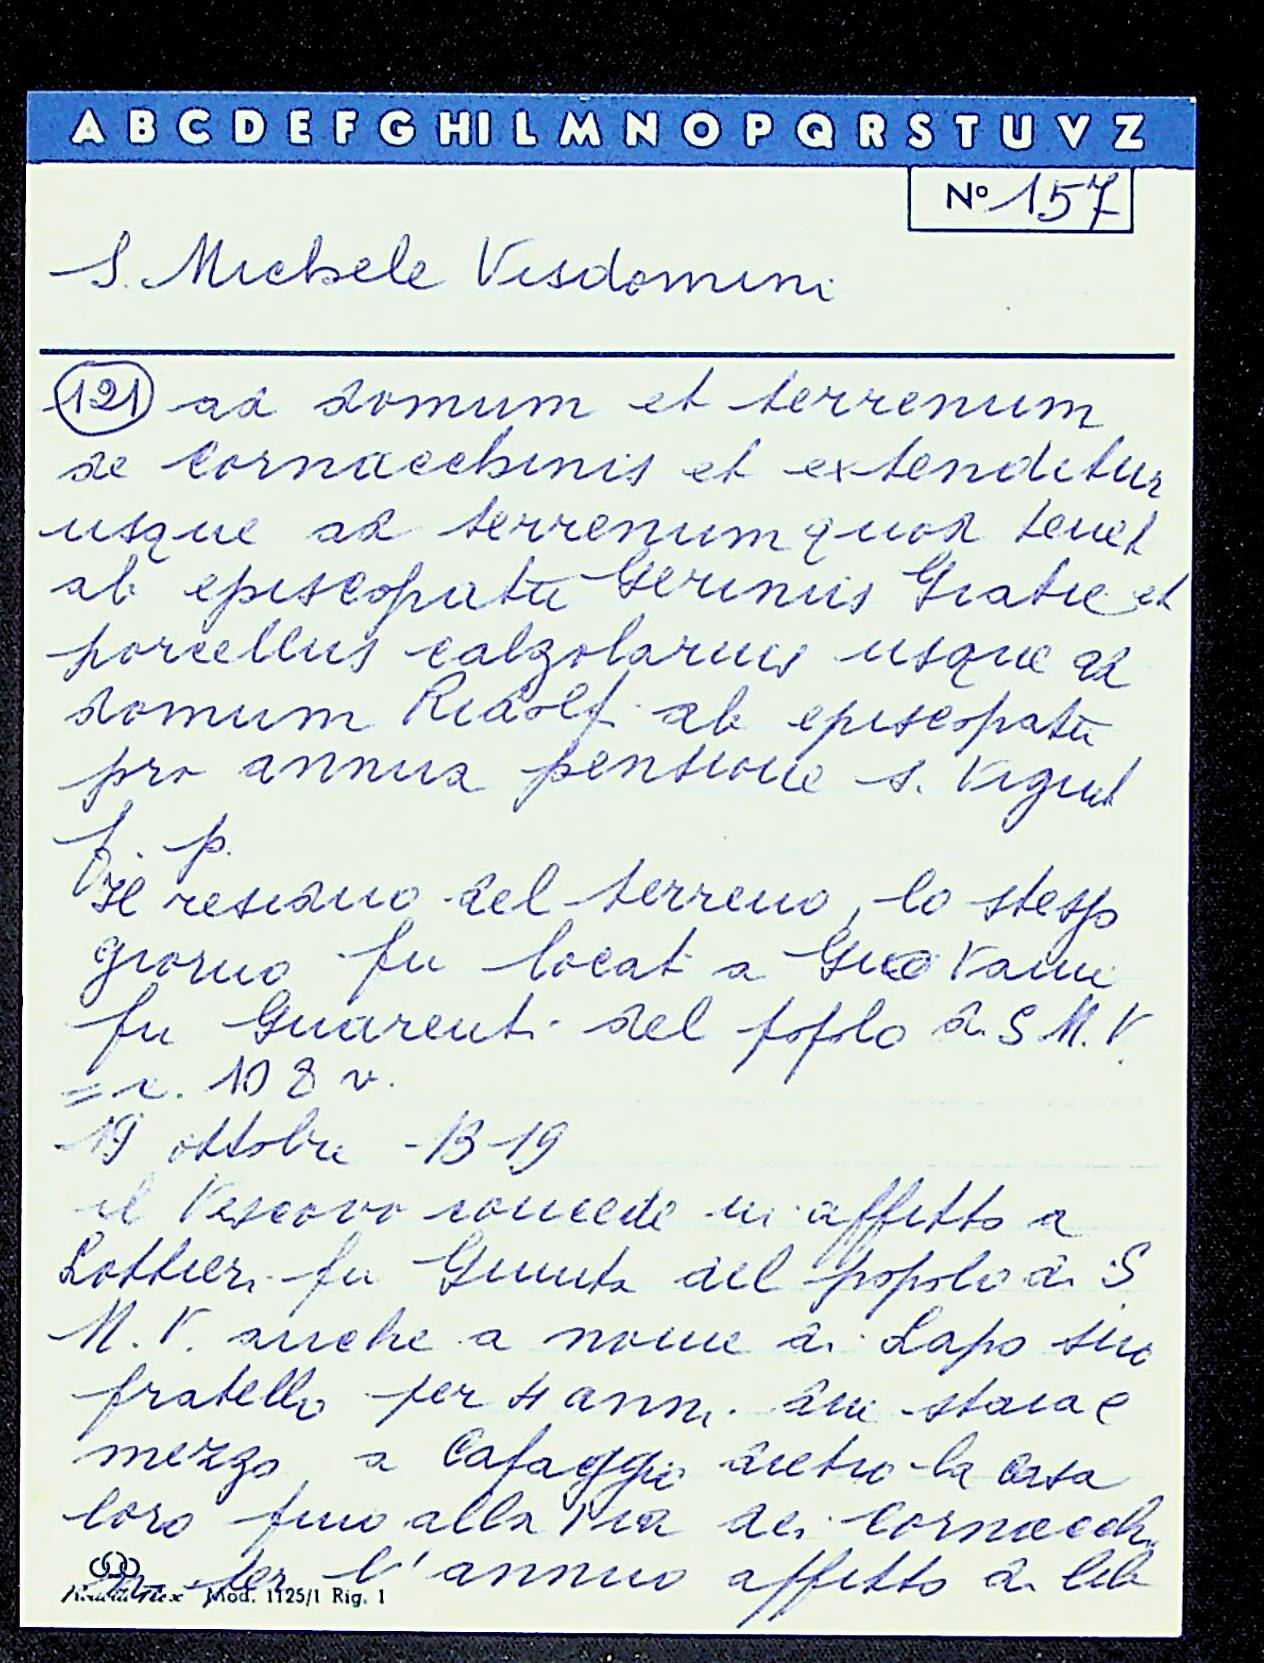 A B C D E F G H I L M N O P Q R S T U V Z
Nº 157
S. Michele Visdomini
121 ad domum et terrenum
de Cornacchinis et extenditur
usque ad terrenum quod tenet
ab episcopatu Gerinus Gratie et
porcellus calzolarius usque ad
domum Ridolf. ab episcopatu
pro annua pensione s. Vigint
f. p.
Il residuo del terreno, lo stesso
giorno fu locat a Giovanni
fu Guarent. del popolo d. S M. V.
= c. 108 v.
19 ottobre 1319
il Vescovo concede in affitto a
Lottieri fu Giunta del popolo di S
M. V. anche a nome di Lapo suo
fratello per 4 ann. due staia e
mezzo, a Cafaggio dietro la casa
loro fino alla via dei Cornacch
per l'annuo affitto di lib
Mod. 1125/1 Rig. 1